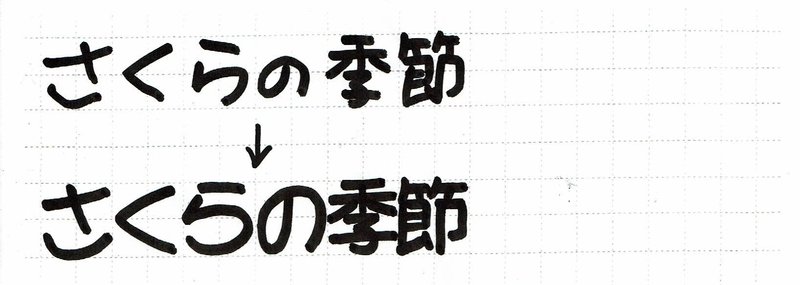 さくらの季節
↓
さくらの季節